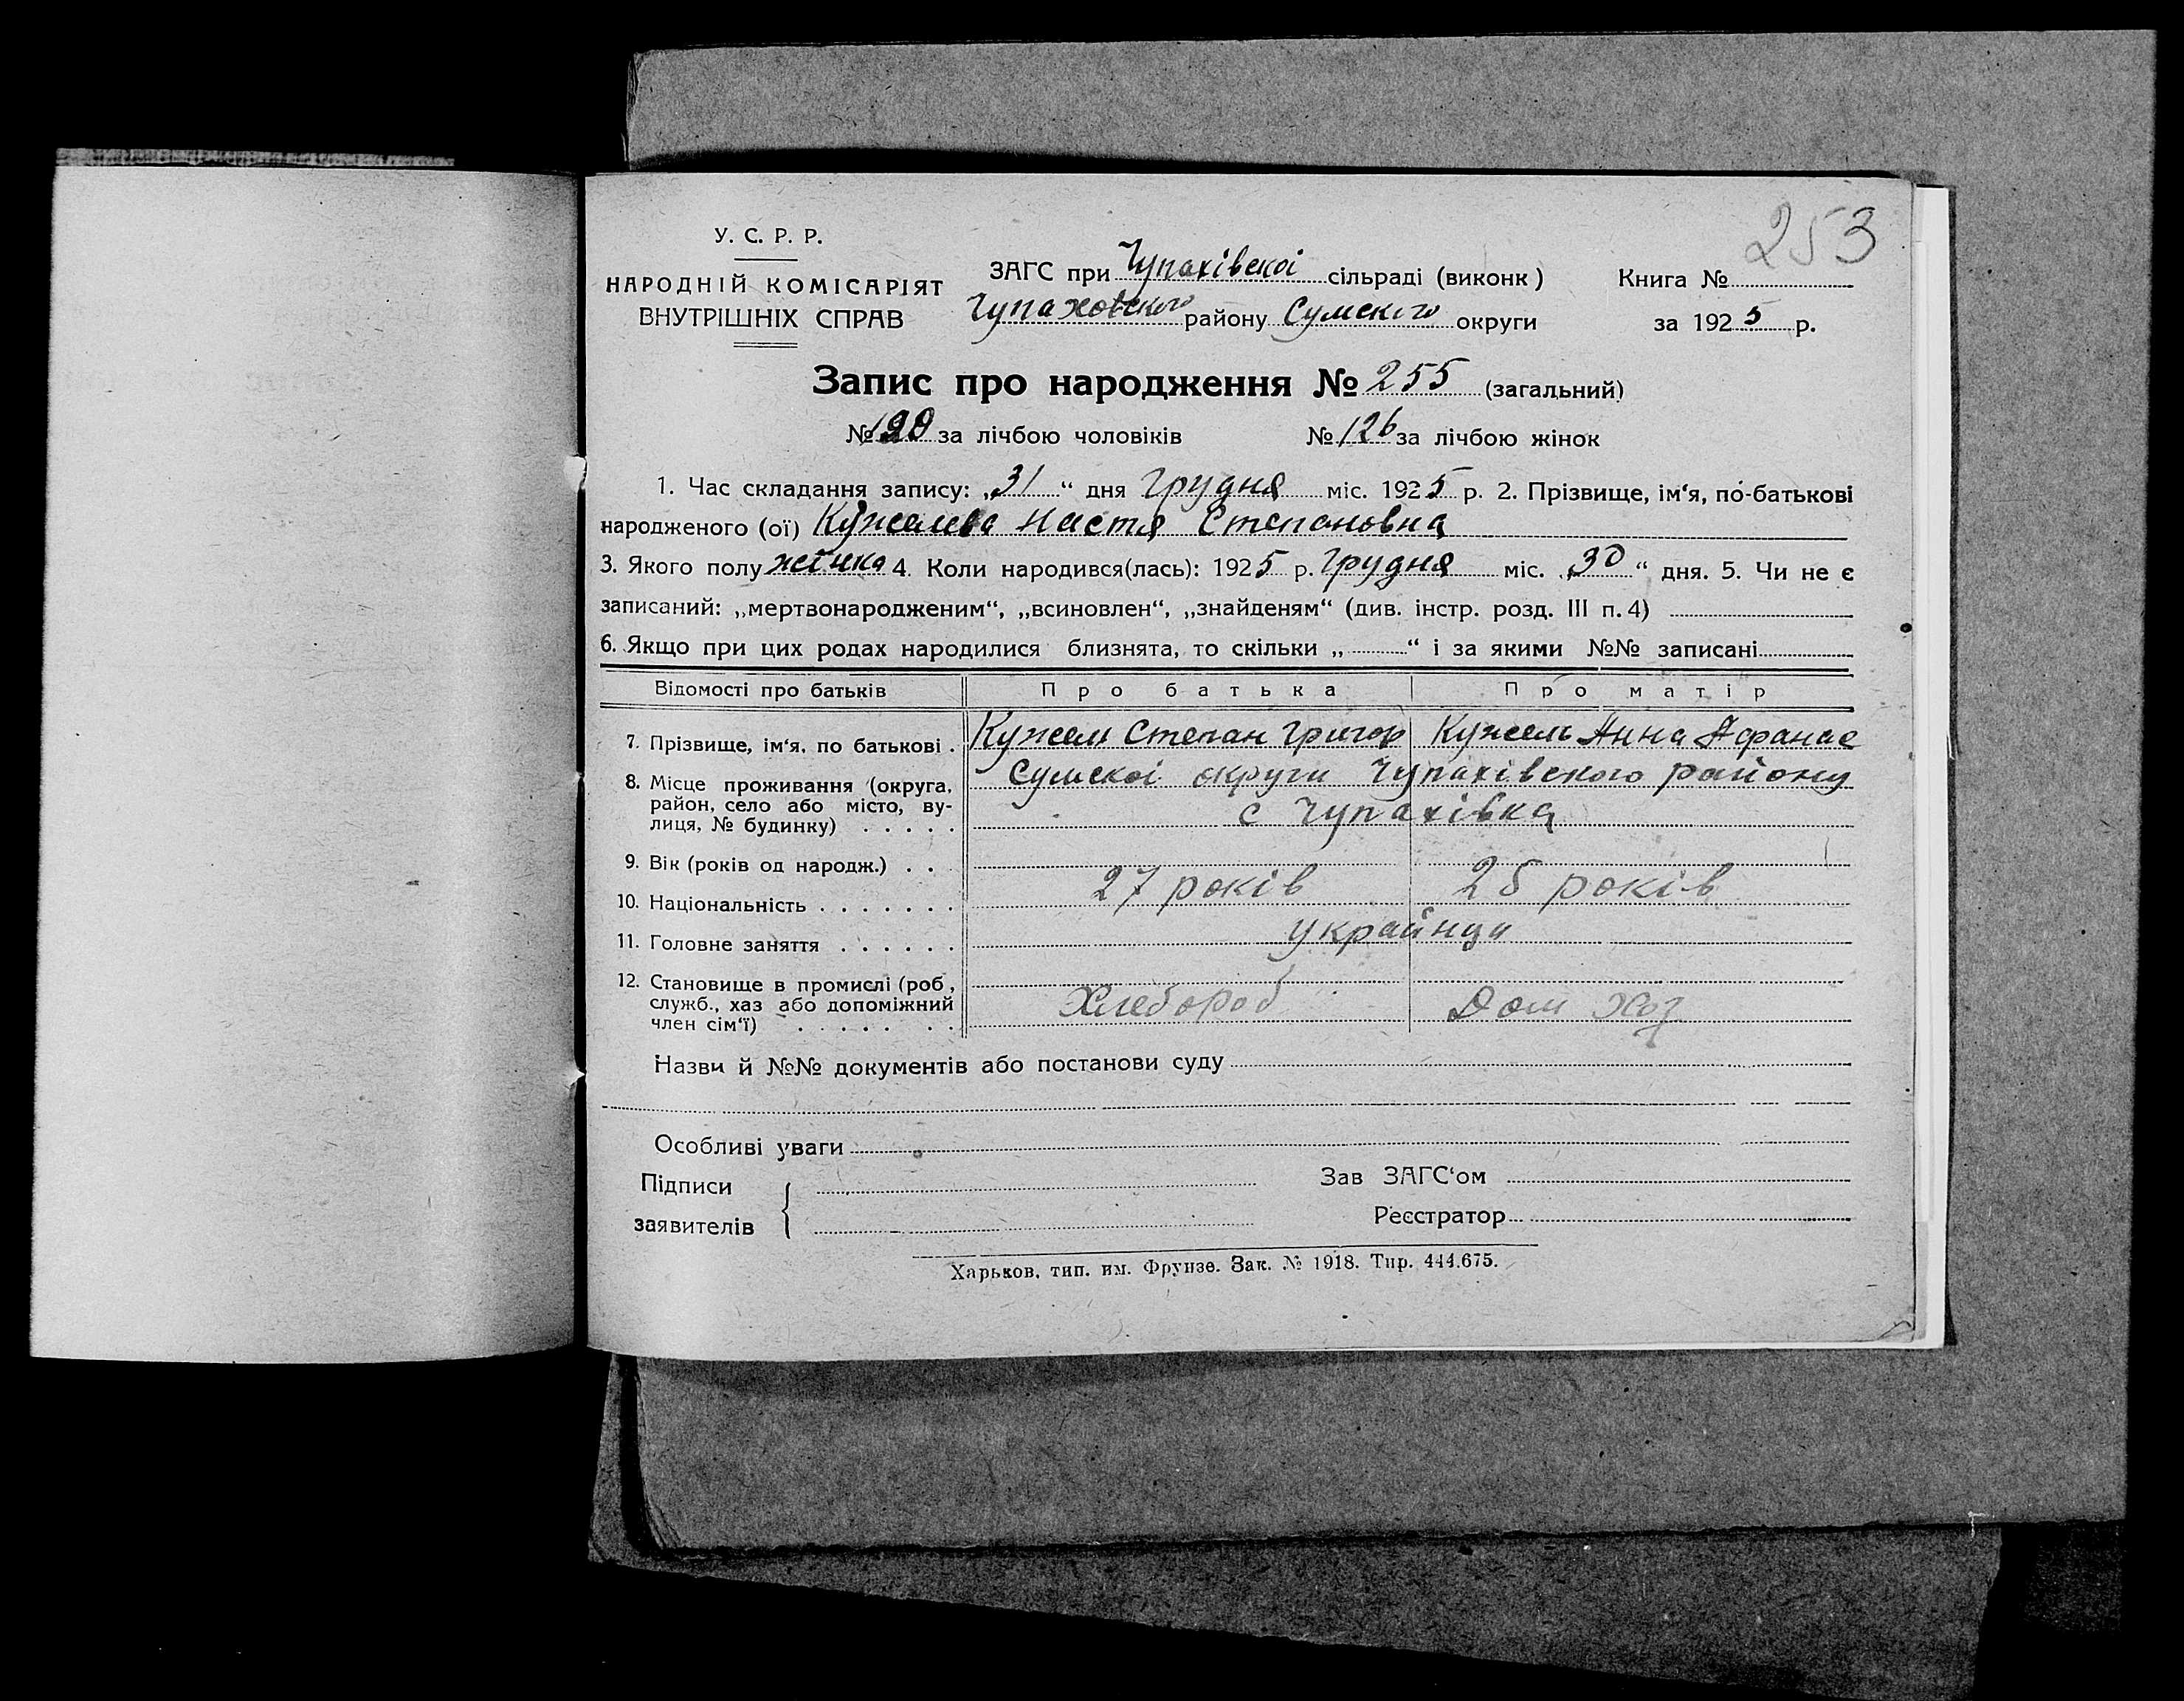 253
У. С. Р. Р.
НАРОДНІЙ КОМІСАРІЯТ
ВНУТРІШНІХ СПРАВ
ЗАГС при Чупахівскоі сільраді (виконк)
Чупаховского району Сумского округи
Книга №
за 1925 р.
Запис про народження № 255 (загальний)
№ за лічбою чоловіків № 126 за лічбою жінок
1. Час складання запису: „31“ дня Грудня міс. 1925 р. 2. Прізвище, ім‘я, по-батькові
народженого (ої) Кужелева Настя Степановна
3. Якого полу жінка 4. Коли народився(лась): 1925 р. Грудня міс. „30“ дня. 5. Чи не є
записаний: „мертвонародженим“, „всиновлен“, „знайденям“ (див. інстр. розд. III п. 4)
6. Якщо при цих родах народилися близнята, то скільки „ “ і за якими №№ записані
Відомості про батьків Про батька Про матір
7. Прізвище, ім‘я, по батькові . Кужель Степан Григор Кужель Анна Афанас
8. Місце проживання (округа, район, село або місто, ву-
лиця, № будинку) . . . . . Сумскоі округи Чупахівского району
с Чупахівка
9. Вік (років од народж.) . . . 27 років 25 років
10. Національність . . . . . . . українци
11. Головне заняття . . . . . .
12. Становище в промислі (роб,
служб., хаз або допоміжний
член сім‘ї) . . . . . . . Хлебороб Дом Хоз
Назви й №№ документів або постанови суду
Особливі уваги
Підписи
заявителів
Зав ЗАГС‘ом
Реєстратор
Харьков, тип. им. Фрунзе. Зак. № 1918. Тир. 444.675.